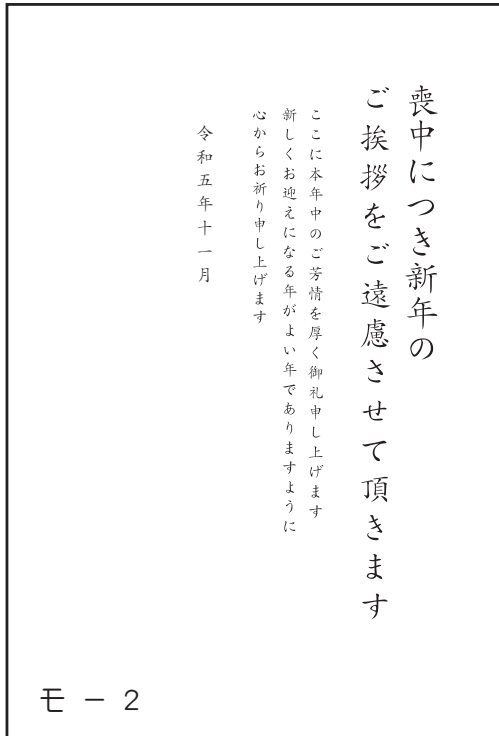 喪中につき新年の
ご挨拶をご遠慮させて頂きます
ここに本年中のご芳情を厚く御礼申し上げます
新しくお迎えになる年がよい年でありますように
心からお祈り申し上げます
令和五年十一月
モ－2